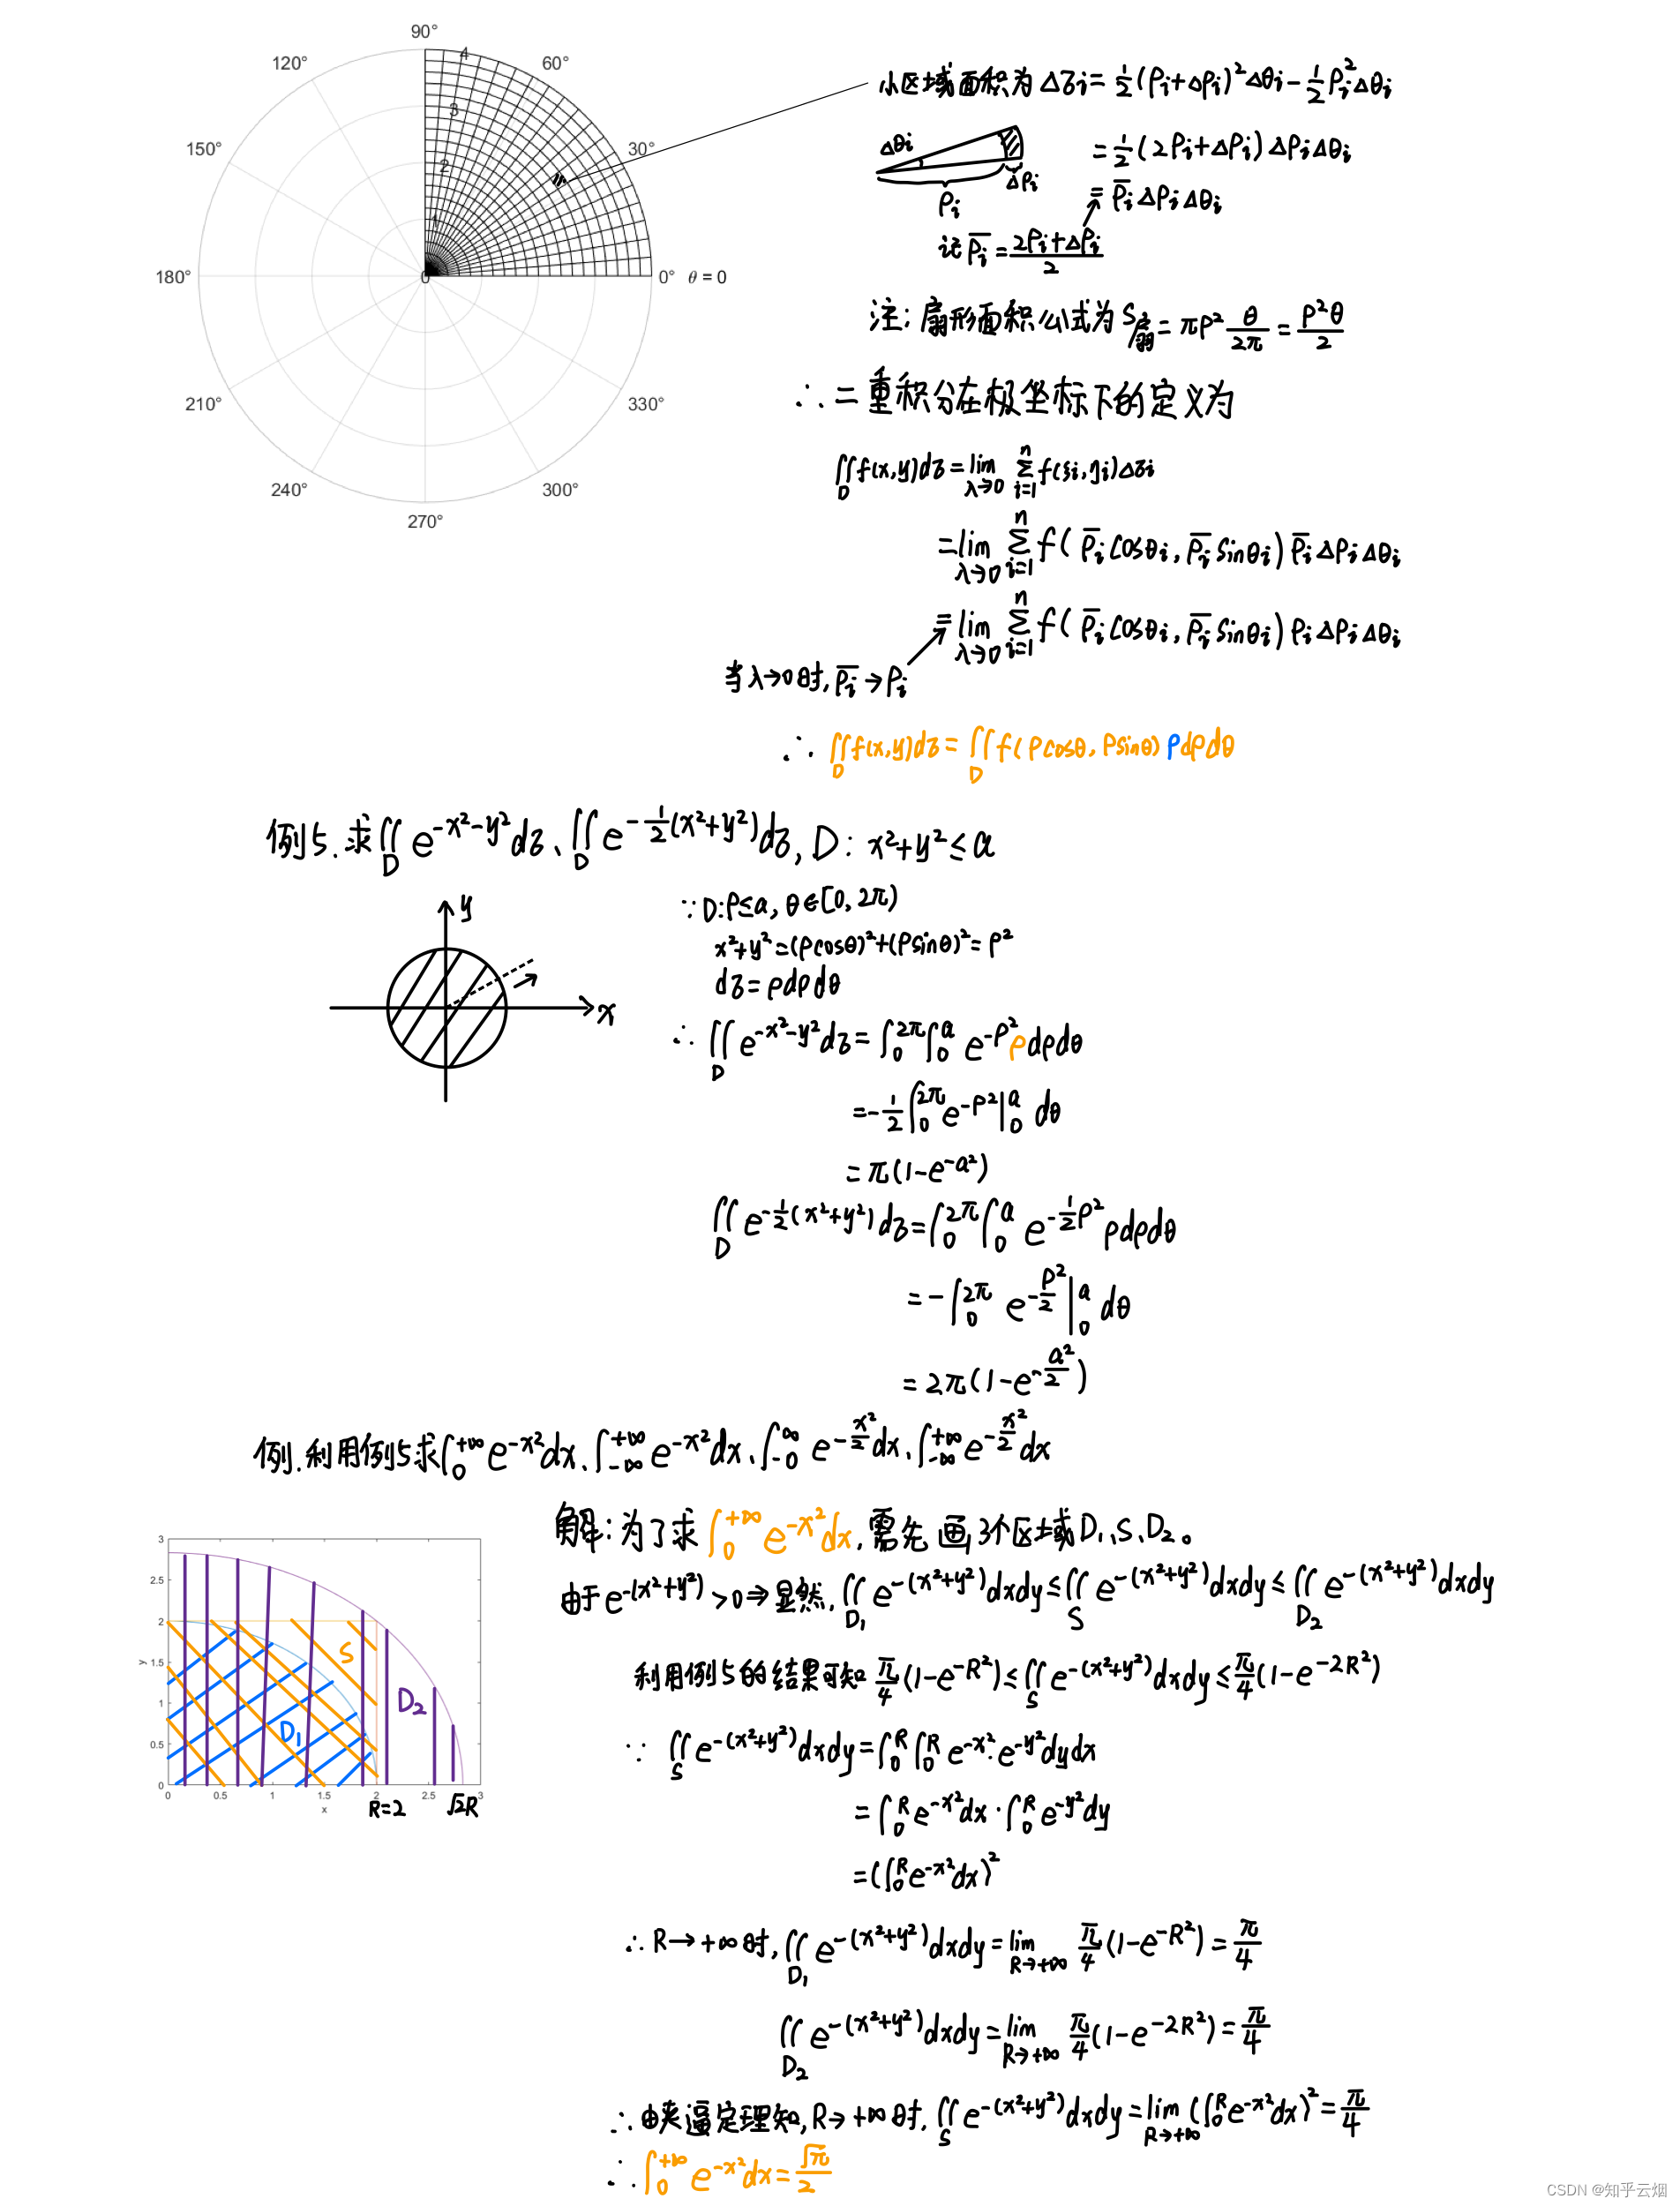 90°
120°
60°
150°
30°
180°
0° θ = 0
210°
330°
240°
300°
270°
4
3
2
1
0
小区域面积为Δσi = 1/2(ρi+Δρi)²Δθi - 1/2ρi²Δθi
= 1/2(2ρi+Δρi)ΔρiΔθi
= ρ̄iΔρiΔθi
Δθi
ρi
Δρi
记ρ̄i = (2ρi+Δρi)/2
注:扇形面积公式为S扇 = πρ² θ/2π = ρ²θ/2
∴二重积分在极坐标下的定义为
∬_D f(x,y)dσ = lim_{λ→0} Σ_{i=1}^n f(ξi,ηi)Δσi
= lim_{λ→0} Σ_{i=1}^n f(ρ̄i cosθi, ρ̄i sinθi) ρ̄i Δρi Δθi
= lim_{λ→0} Σ_{i=1}^n f(ρ̄i cosθi, ρ̄i sinθi) ρi Δρi Δθi
当λ→0时, ρ̄i→ρi
∴ ∬_D f(x,y)dσ = ∬_D f(ρcosθ, ρsinθ) ρdρdθ
例5.求∬_D e^{-x²-y²}dσ、∬_D e^{-1/2(x²+y²)}dσ, D: x²+y²≤a
y
x
∵D:ρ≤a, θ∈[0, 2π)
x²+y²=(ρcosθ)²+(ρsinθ)²=ρ²
dσ=ρdρdθ
∴ ∬_D e^{-x²-y²}dσ = ∫_0^{2π}∫_0^a e^{-ρ²}ρdρdθ
= -1/2 ∫_0^{2π} e^{-ρ²}|_0^a dθ
= π(1-e^{-a²})
∬_D e^{-1/2(x²+y²)}dσ = ∫_0^{2π}∫_0^a e^{-1/2ρ²}ρdρdθ
= -∫_0^{2π} e^{-ρ²/2}|_0^a dθ
= 2π(1-e^{-a²/2})
例.利用例5求∫_0^{+∞}e^{-x²}dx、∫_{-∞}^{+∞}e^{-x²}dx、∫_{-0}^{∞}e^{-x²/2}dx、∫_{-∞}^{+∞}e^{-x²/2}dx
解:为了求∫_0^{+∞}e^{-x²}dx,需先画3个区域D₁、S、D₂。
由于e^{-(x²+y²)}>0⇒显然,∬_{D₁}e^{-(x²+y²)}dxdy≤∬_S e^{-(x²+y²)}dxdy≤∬_{D₂}e^{-(x²+y²)}dxdy
3
2.5
2
1.5
1
0.5
0
y
S
D₁
D₂
0 0.5 1 1.5 2 2.5 3
x
R=2
√2R
利用例5的结果可知 π/4(1-e^{-R²})≤∬_S e^{-(x²+y²)}dxdy≤π/4(1-e^{-2R²})
∵ ∬_S e^{-(x²+y²)}dxdy=∫_0^R∫_0^R e^{-x²}·e^{-y²}dydx
=∫_0^R e^{-x²}dx·∫_0^R e^{-y²}dy
=(∫_0^R e^{-x²}dx)²
∴R→+∞时,∬_{D₁}e^{-(x²+y²)}dxdy=lim_{R→+∞} π/4(1-e^{-R²})=π/4
∬_{D₂}e^{-(x²+y²)}dxdy=lim_{R→+∞} π/4(1-e^{-2R²})=π/4
∴由夹逼定理知,R→+∞时,∬_S e^{-(x²+y²)}dxdy=lim_{R→+∞}(∫_0^R e^{-x²}dx)²=π/4
∴∫_0^{+∞}e^{-x²}dx=√π/2
CSDN @知乎云烟